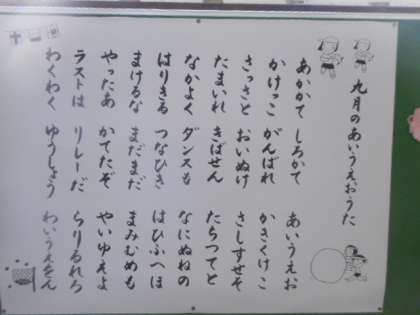 九月のあいうえおうた
あかかて しろかて あいうえお
かけっこ がんばれ かきくけこ
さっさと おいぬけ さしすせそ
たまいれ きばせん たちつてと
なかよく ダンスも なにぬねの
はりきる つなひき はひふへほ
まけるな まだまだ まみむめも
やったあ かてたぞ やいゆえよ
ラストは リレーだ らりるれろ
わくわく ゆうしょう わいうえをん